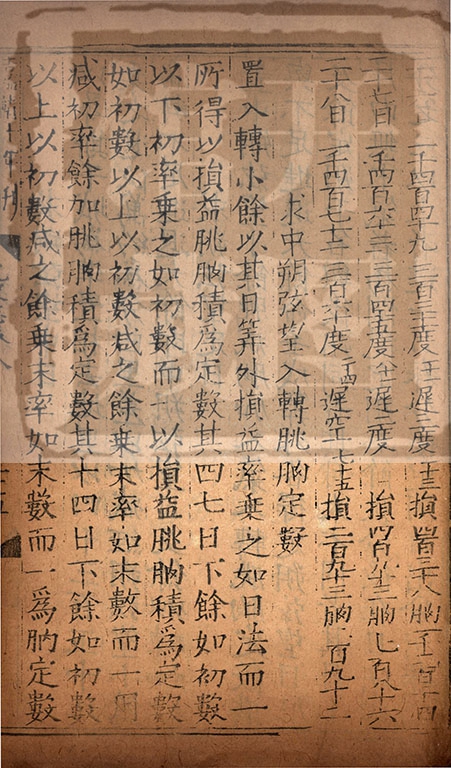 一千四百四十九 遲三度 損四百二十八 朒一千二百一十四
二十七日 三百四十五度 遲二度 損 朒七百八十六
二十八日 一千四百七十 三百六十度 遲空七十五 損二百九十三 朒二百九十二
求中朔弦望入轉朓朒定數
置入轉小餘以其日筭外損益率乘之如日法而一
所得以損益朓朒積爲定數其四七日下餘如初數
以下初率乘之如初數而 以損益朓朒積爲定數
如初數以上以初數减之餘乘末率如末數而一用
减初率餘加朓朒積爲定數其十四日下餘如初數
以上以初數减之餘乘末率如末數而一爲朒定數
十年刊